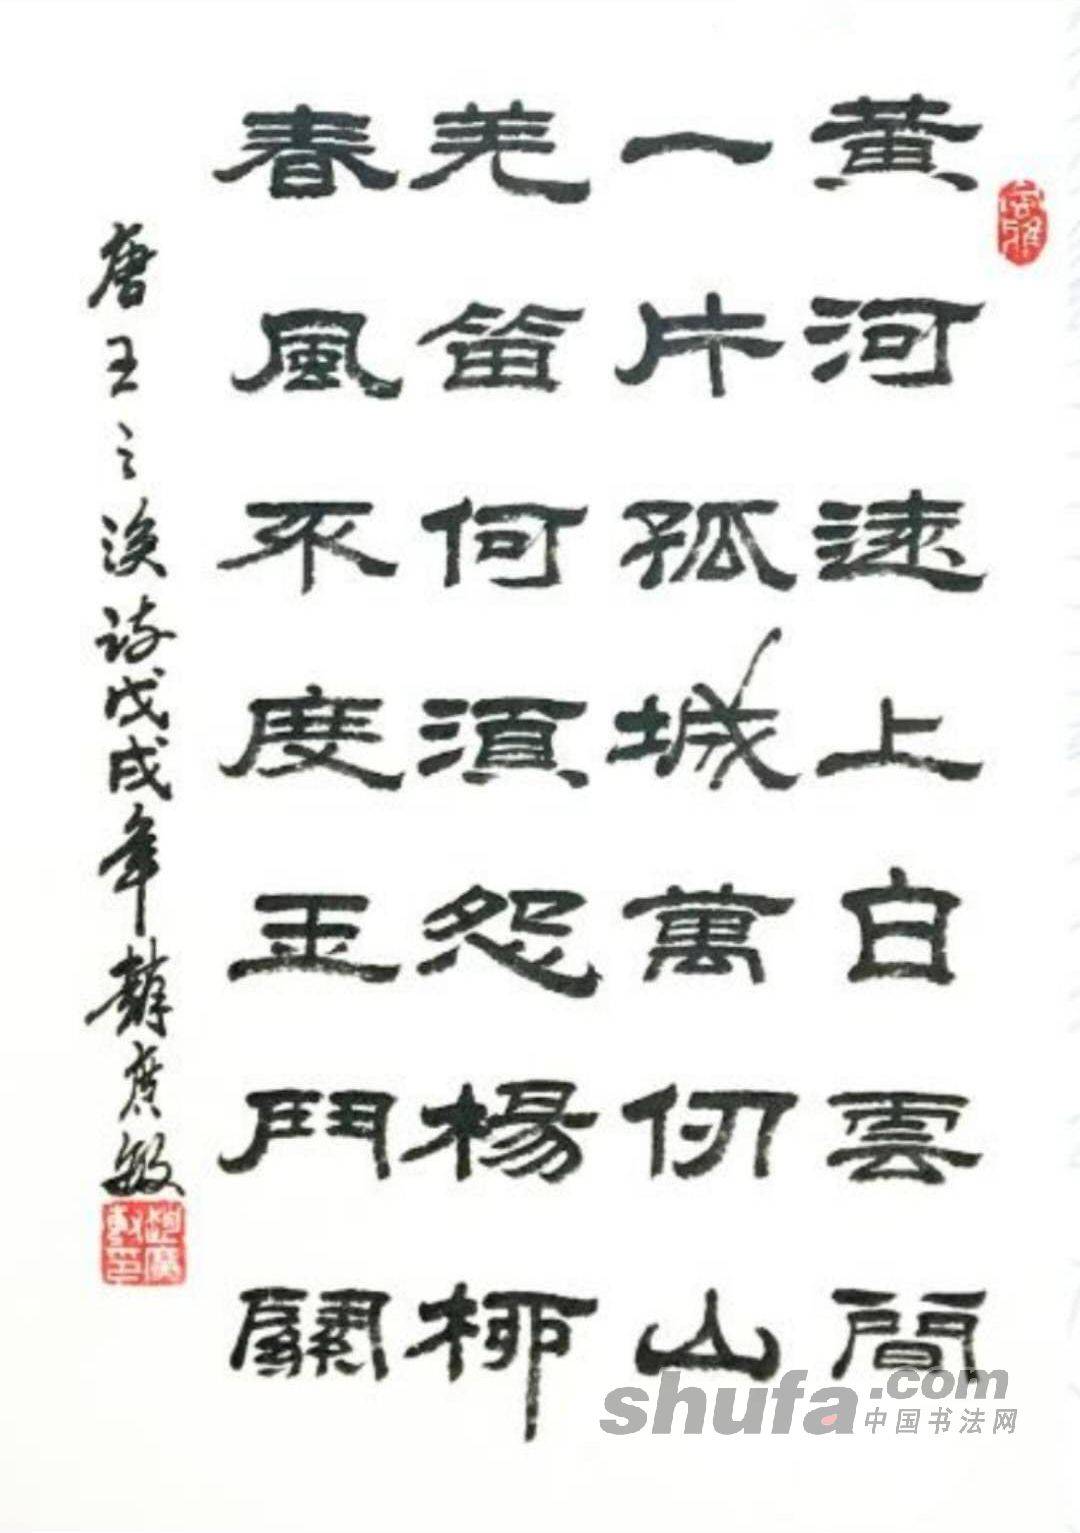 黄河遠上白雲間
一片孤城萬仞山
羌笛何須怨楊柳
春風不度玉門關
唐王之渙詩戊戌年廣敏
shufa.com
中国书法网